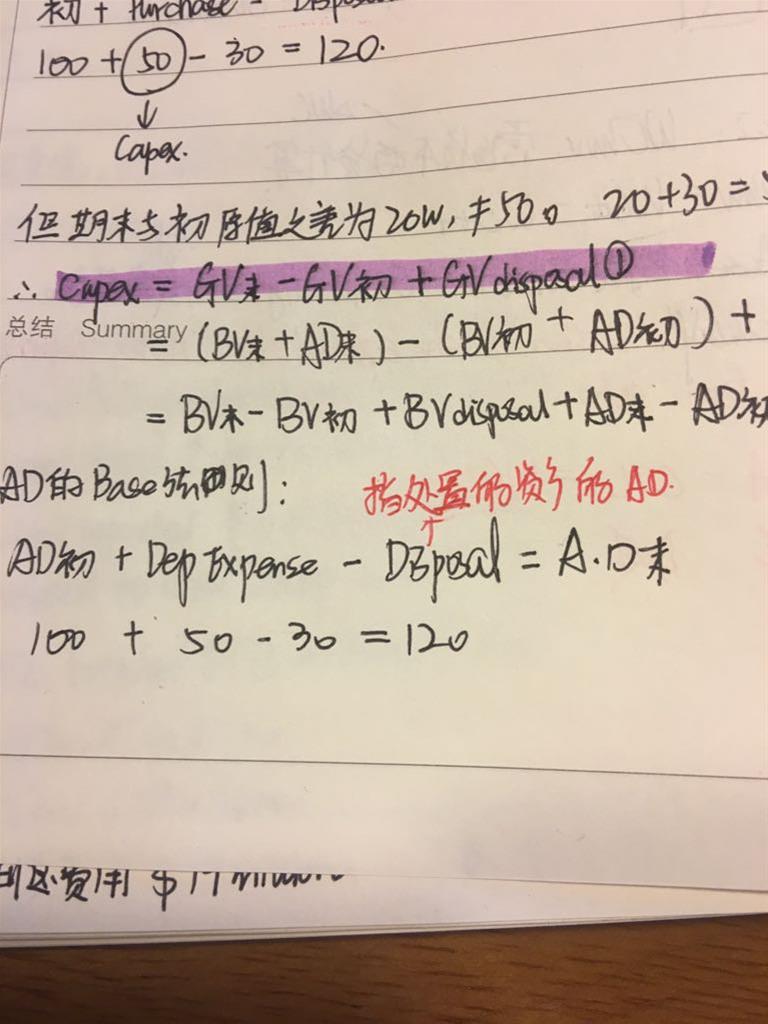 初 + Purchase - Disposal
100 + 50 - 30 = 120.
↓
Capex.
但期末与初原值之差为20W, ≠50。 20+30=5
∴ Capex = GV末 - GV初 + GV disposal ①
总结 Summary
= (BV末 + AD末) - (BV初 + AD初) +
= BV末 - BV初 + BV disposal + AD末 - AD初
AD的Base法则:
指处置的资产的AD.
AD初 + Dep Expense - Disposal = A.D末
100 + 50 - 30 = 120
费用 $